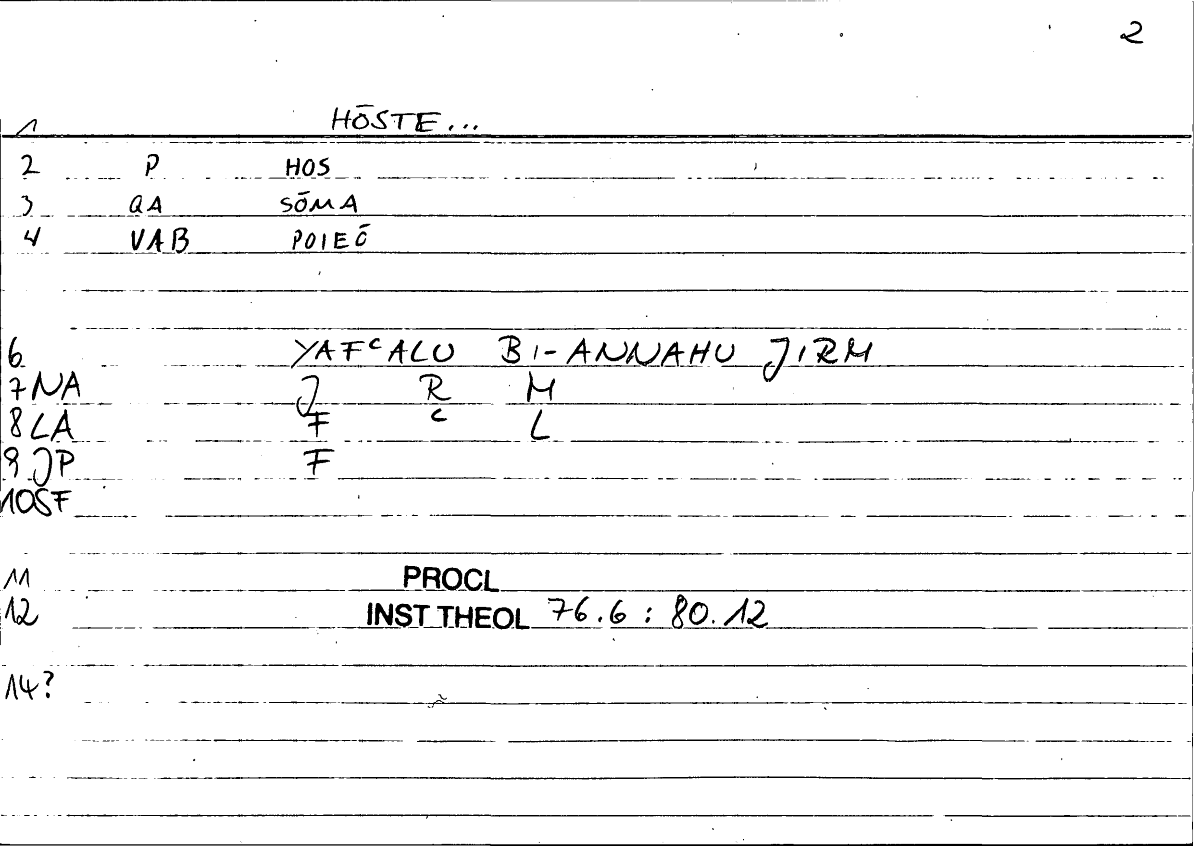 2
1 HŌSTE...
2 P HOS
3 QA SŌMA
4 VAB POIEŌ
6 YAFᶜALU BI-ANNAHU JIRM
7 NA J R M
8 LA F ᶜ L
9 JP F
10 SF
11 PROCL
12 INST THEOL 76.6 : 80.12
14?